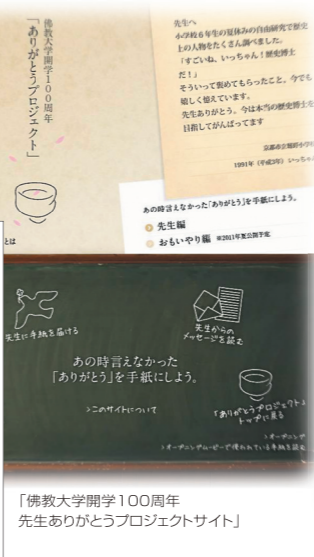 佛教大学開学100周年
「ありがとうプロジェクト」
先生へ
小学校6年生の夏休みの自由研究で歴史
上の人物をたくさん調べました。
「すごいね、いっちゃん！歴史博士
だ！」
そういって褒めてもらったこと、今でも
嬉しく憶えています。
先生ありがとう。今は本当の歴史博士を
目指してがんばってます
1991年（平成3年） いっちゃ
あの時言えなかった「ありがとう」を手紙にしよう。
先生編
おもいやり編 ※2011年夏公開予定
とは
先生に手紙を届ける
先生からの
メッセージを読む
あの時言えなかった
「ありがとう」を手紙にしよう。
>このサイトについて
「ありがとうプロジェクト」
トップに戻る
>オープニング
>オープニングムービーで使われている手紙を読む
「佛教大学開学100周年
先生ありがとうプロジェクトサイト」